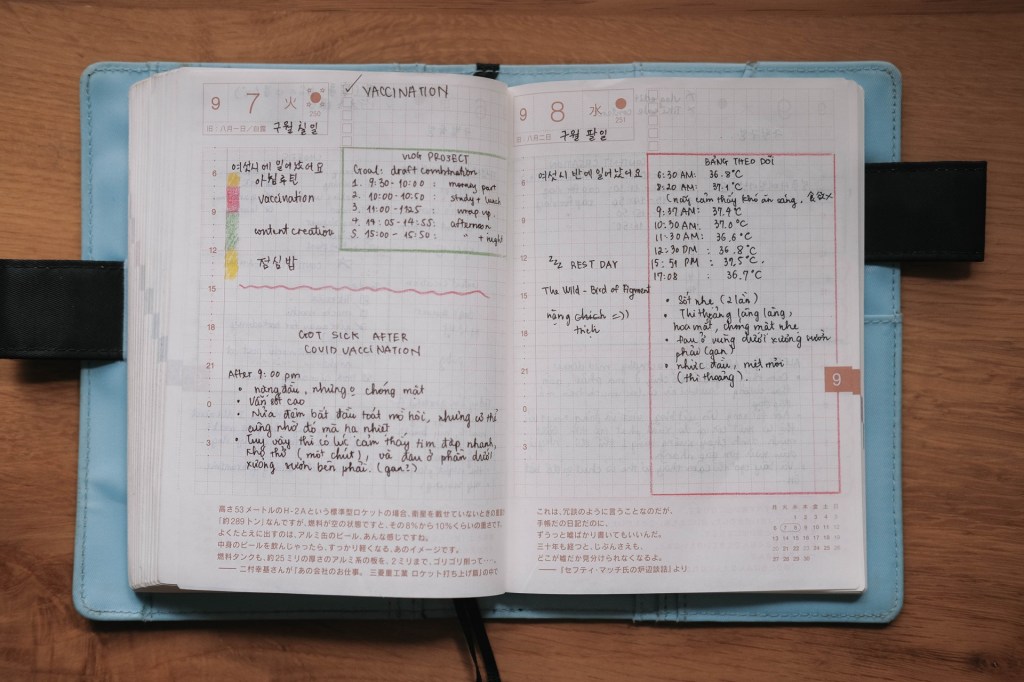 9
7
火
250
旧:八月一日/白露
구월 칠일
✓ VACCINATION
6
9
12
15
18
21
0
3
여섯시에 일어났어요
아침루틴
vaccination
content creation
점심밥
VLOG PROJECT
Goal: draft combination
1. 9:30-10:00 : money part
2. 10:00-10:50 : study + lunch
3. 11:00-1125 : wrap up.
4. 14:05-14:55: afternoon
5. 15:00 - 15:50: " + night
GOT SICK AFTER
COVID VACCINATION
After 9:00 pm
• nặng đầu, nhưng o chóng mặt
• Vẫn sốt cao
• Nửa đêm bắt đầu toát mồ hôi, nhưng có thể
cũng nhờ đó mà hạ nhiệt
• Tuy vậy thì có lúc cảm thấy tim đập nhanh,
khó thở (một chút), và đau ở phần dưới
xương sườn bên phải. (gan?)
高さ53メートルのH-2Aという標準型ロケットの場合、衛星を載せていないときの重量
「約289トン」なんですが、燃料が空の状態ですと、その8%から10%くらいの重さです。
よくたとえに出すのは、アルミ缶のビール、あんな感じですね。
中身のビールを飲んじゃったら、すっかり軽くなる、あのイメージです。
燃料タンクも、約25ミリの厚さのアルミ系の板を、2ミリまで、ゴリゴリ削って…。
── 二村幸基さんが『あの会社のお仕事。 三菱重工業 ロケット打ち上げ篇』の中で
9
8
水
251
旧:八月二日
구월 팔일
6
9
12
15
18
21
0
3
여섯시 반에 일어났어요
zzz REST DAY
The Wild - Bird of Figment
nặng chích =))
trích
BẢNG THEO DÕI
6:30 AM: 36.8°C
8:20 AM: 37.1°C
(nãy cảm thấy khó ăn sáng, 食欲x
9:37 AM: 37.9°C
10:30 AM: 37.0°C
11:30 AM: 36.6°C
12:30 PM : 36.8°C
15:51 PM : 37,5°C.
17:08 : 36.7°C
• Sốt nhẹ (2 lần)
• Thi thoảng lâng lâng,
hoa mắt, chóng mặt nhẹ
• Đau ở vùng dưới xương sườn
phải (gan)
• nhức đầu, mệt mỏi
(thi thoảng).
9
これは、冗談のように言うことなのだが、
手帳だの日記だのに、
ずうっと嘘ばかり書いてもいいんだ。
三十年も経つと、じぶんさえも、
どこが嘘だか見分けられなくなるよ。
──『セフティ・マッチ氏の炉辺談話』より
月 火 水 木 金 土 日
1 2 3 4 5
6 7 8 9 10 11 12
13 14 15 16 17 18 19
20 21 22 23 24 25 26
27 28 29 30